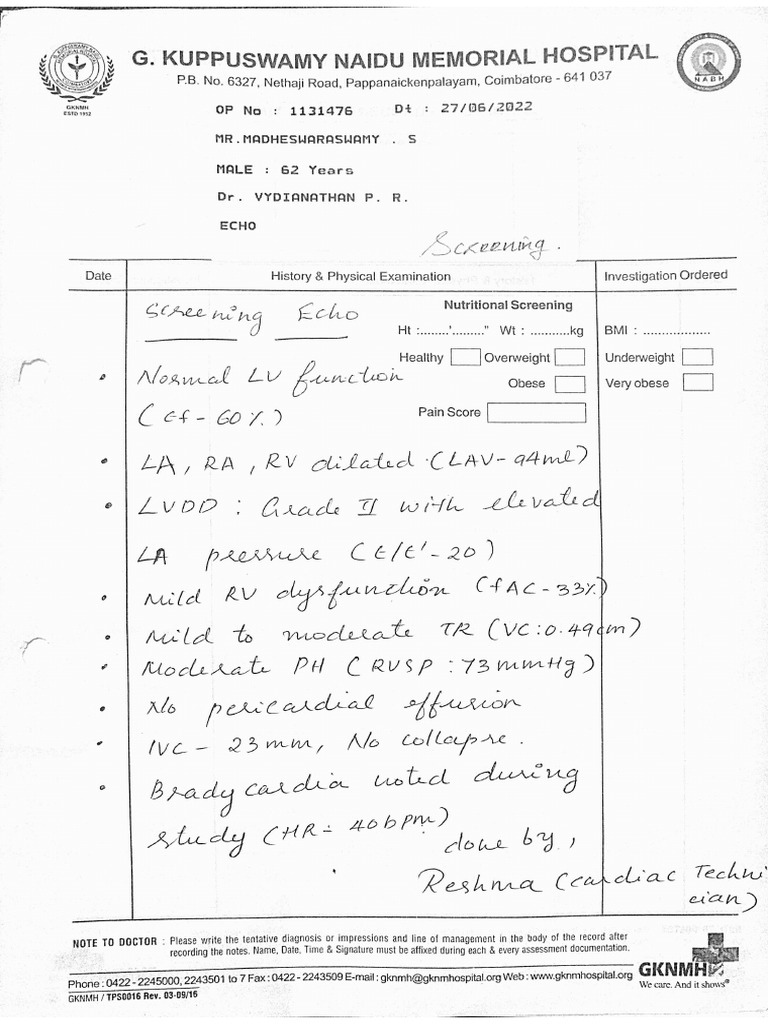 G. KUPPUSWAMY NAIDU MEMORIAL HOSPITAL
P.B. No. 6327, Nethaji Road, Pappanaickenpalayam, Coimbatore - 641 037
GKNMH
ESTD 1952
NABH
OP No : 1131476 Dt : 27/06/2022
MR.MADHESWARASWAMY . S
MALE : 62 Years
Dr. VYDIANATHAN P. R.
ECHO
Screening.
Date History & Physical Examination Investigation Ordered
Screening Echo
Nutritional Screening
Ht :........'........." Wt : ...........kg BMI : .................
Healthy Overweight Underweight
Obese Very obese
Pain Score
• Normal LV function
(Ef - 60%)
• LA, RA, RV dilated (LAV - 94ml)
• LVDD : Grade II with elevated
LA pressure (E/E' - 20)
• Mild RV dysfunction (fAC - 33%)
• Mild to moderate TR (VC: 0.49cm)
• Moderate PH (RVSP : 73mmHg)
• No pericardial effusion
• IVC - 23mm, No collapse.
• Bradycardia noted during
study (HR = 40bpm)
done by,
Reshma (cardiac Techni
cian)
NOTE TO DOCTOR : Please write the tentative diagnosis or impressions and line of management in the body of the record after
recording the notes. Name, Date, Time & Signature must be affixed during each & every assessment documentation.
Phone : 0422 - 2245000, 2243501 to 7 Fax : 0422 - 2243509 E-mail : gknmh@gknmhospital.org Web : www.gknmhospital.org
GKNMH / TPS0016 Rev. 03-09/16
GKNMH
We care. And it shows®